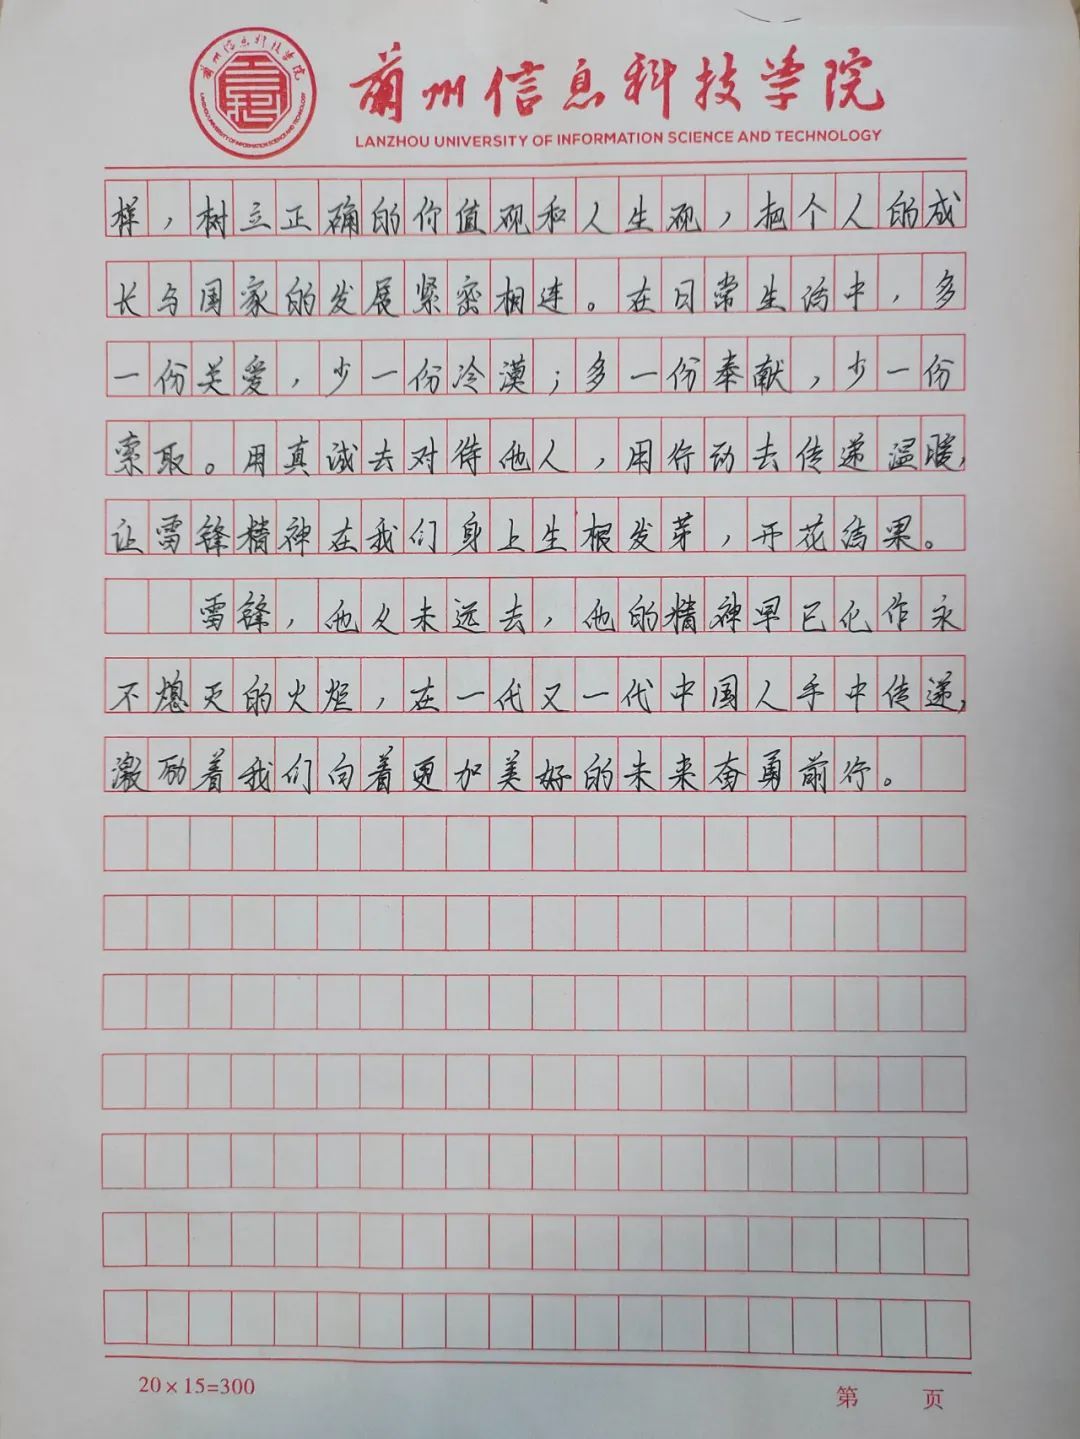 兰州信息科技学院
LANZHOU UNIVERSITY OF INFORMATION SCIENCE AND TECHNOLOGY
样，树立正确的价值观和人生观，把个人的成
长与国家的发展紧密相连。在日常生活中，多
一份关爱，少一份冷漠；多一份奉献，少一份
索取。用真诚去对待他人，用行动去传递温暖，
让雷锋精神在我们身上生根发芽，开花结果。
雷锋，他从未远去，他的精神早已化作永
不熄灭的火炬，在一代又一代中国人手中传递，
激励着我们向着更加美好的未来奋勇前行。
20×15=300
第 页